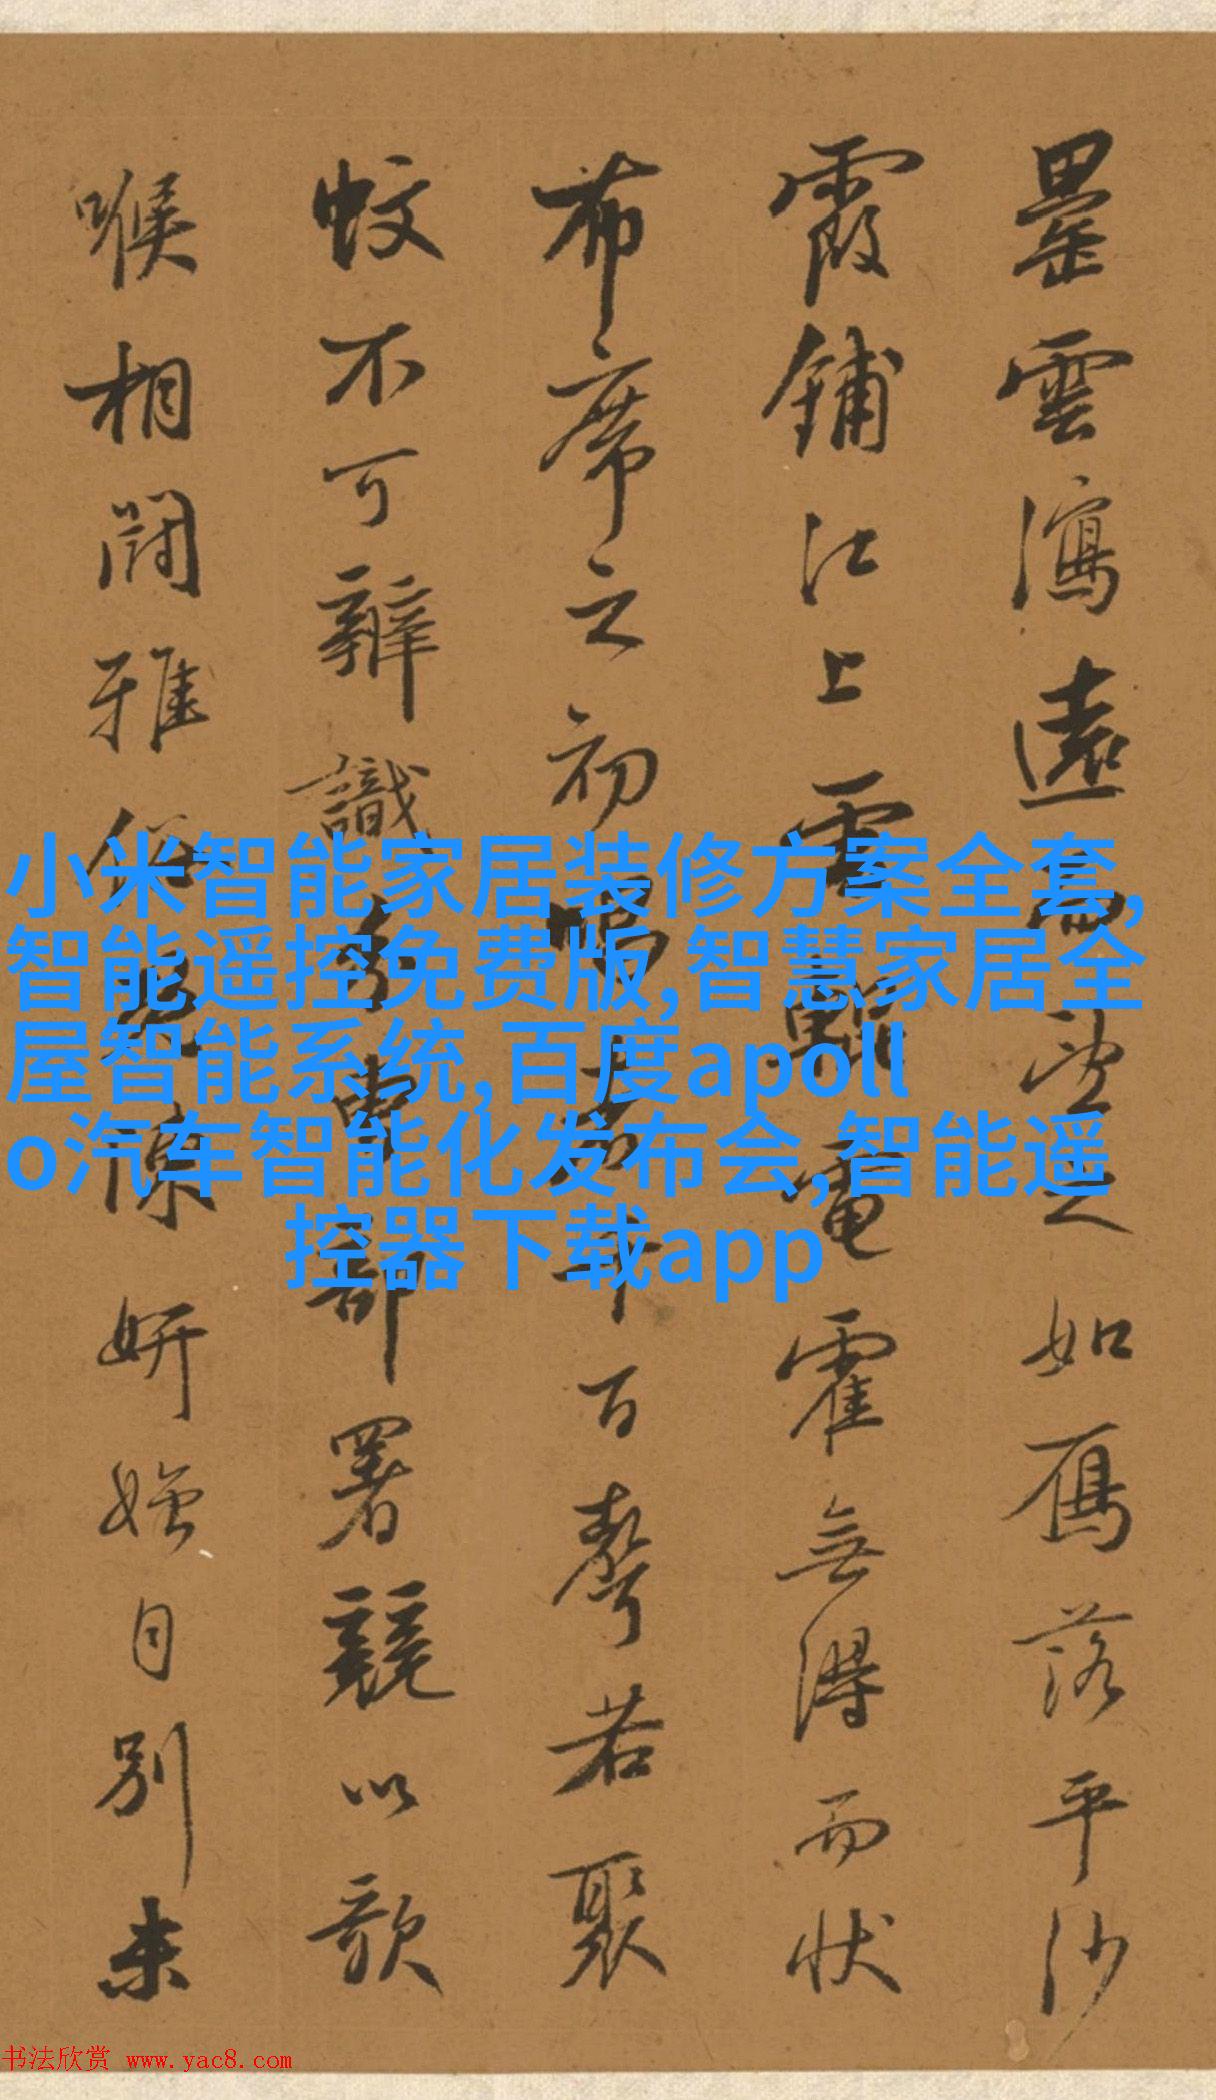 罍雲瀉遠而望之如鴈落平沙
霞鋪江上雷輥電霍無得而状
布席之初唱者千百聲若聚
蚊不可辨識分曹部署競以歌
喉相鬪雅俗既陳妍媸自别未
小米智能家居装修方案全套,
智能遥控免费版,智慧家居全
屋智能系统,百度apoll
o汽车智能化发布会,智能遥
控器下载app
书法欣赏 www.yac8.com